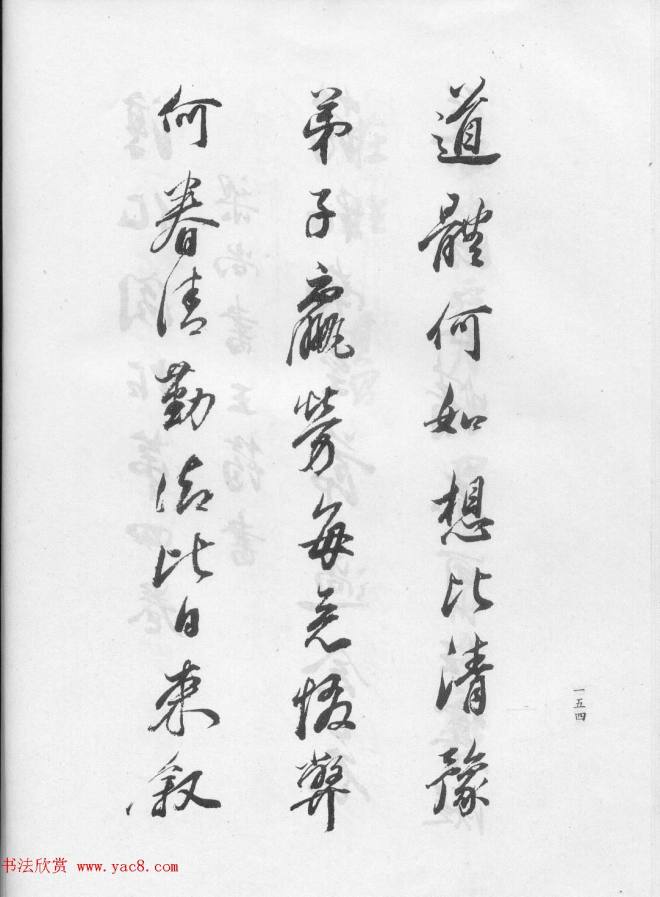 道體何如想比清豫
弟子羸勞每惡惙弊
何眷清勤比日來叙
一五四
书法欣赏 www.yac8.com